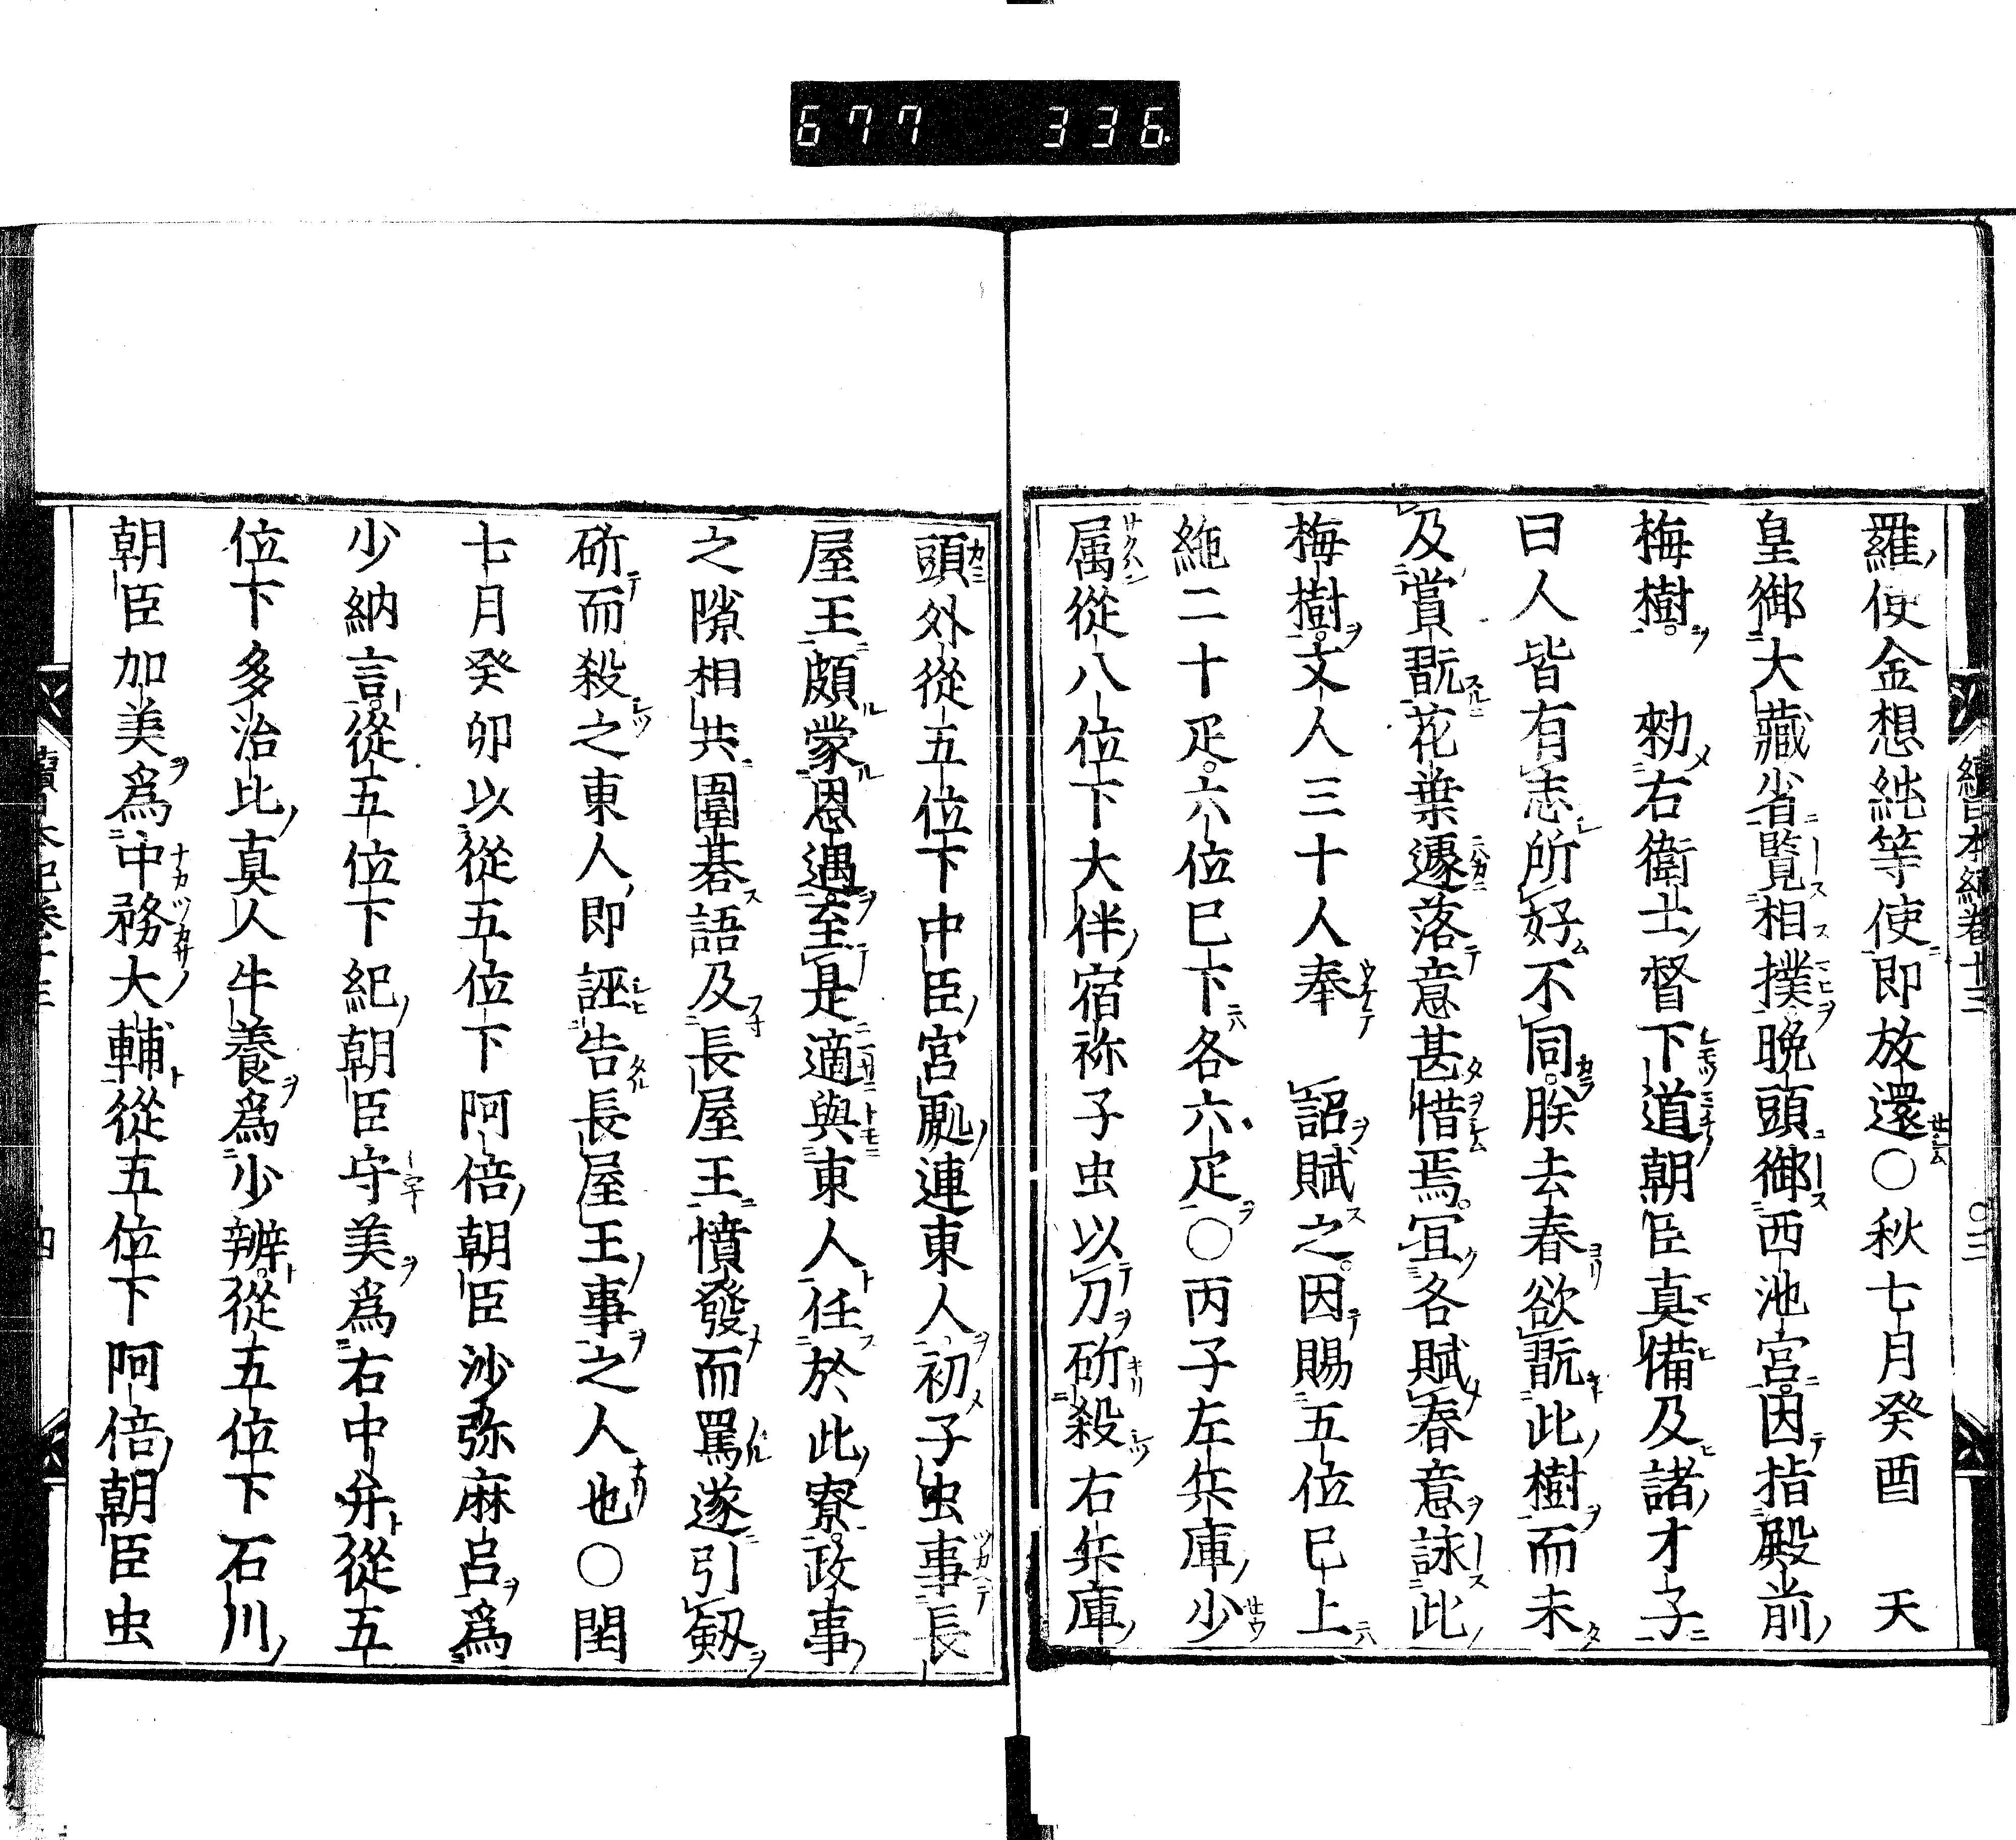 677 336
羅使金想純等使即放還〇秋七月癸酉 天
皇御大藏省覽相撲晚頭御西池宮因指殿前
梅樹。 勑右衛士督下道朝臣真備及諸才子
曰人皆有志所好不同。朕去春欲翫此樹而未
及賞翫花葉遽落意甚惜焉。宜各賦春意詠此
梅樹。文人三十人奉 詔賦之。因賜五位已上
絁二十疋。六位已下各六疋〇丙子左兵庫少
属從八位下大伴宿祢子虫以刀斫殺右兵庫
頭外從五位下中臣宮處連東人初子虫事長
屋王頗蒙恩遇至是適與東人任於此寮。政事
之隙相共圍碁語及長屋王憤發而罵遂引劔
斫而殺之東人即誣告長屋王事之人也〇閏
七月癸卯以從五位下阿倍朝臣沙弥麻呂爲
少納言。從五位下紀朝臣守美爲右中弁從五
位下多治比真人牛養爲少辨。從五位下石川
朝臣加美爲中務大輔從五位下阿倍朝臣虫